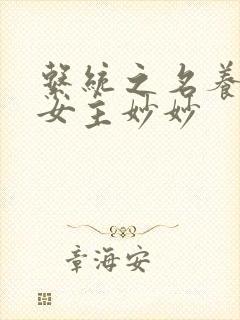 繫統之名養
女主妙妙
章海安